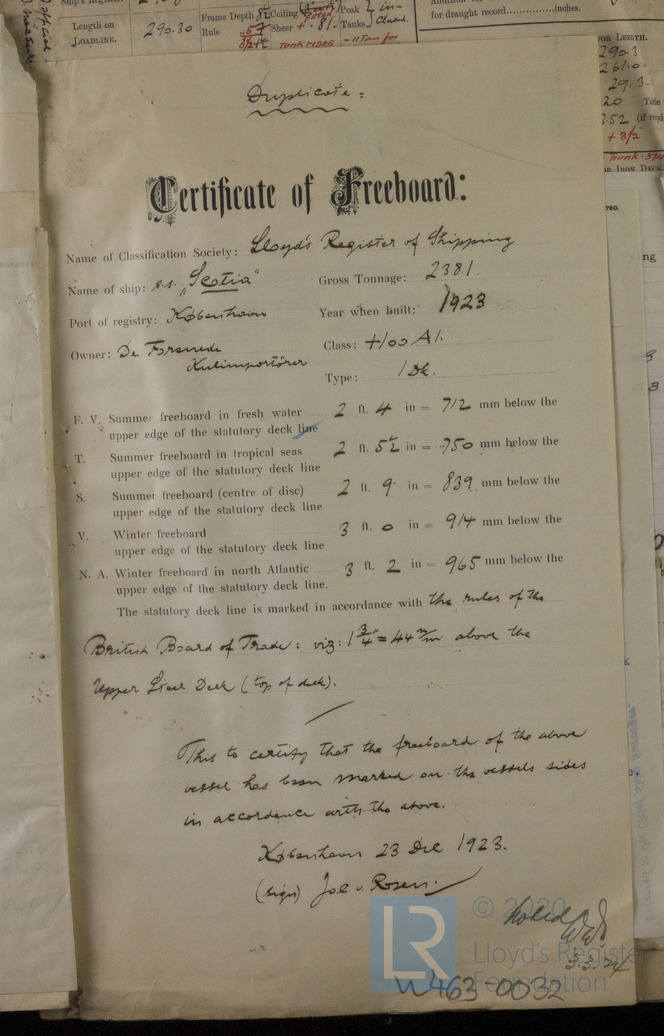 Length on
LOADLINE.
290.30
Frame Depth
Rule
Ceiling
Sheer
Peak
Tanks
for draught record..............inches.
OR LENGTH.
290.3
261.0
29.3
20
3.52
+ 3/2
Duplicate:
Certificate of Freeboard:
Name of Classification Society: Lloyd's Register of Shipping
Name of ship: s.s. "Scotia"
Gross Tonnage: 2381.
Port of registry: København
Year when built: 1923
Owner: De Forenede
Kulimportører
Class: +100 A1.
Type: 1 Dk.
F. V. Summer freeboard in fresh water 2 ft. 4 in = 712 mm below the
upper edge of the statutory deck line
T. Summer freeboard in tropical seas 2 ft. 5½ in = 750 mm below the
upper edge of the statutory deck line
S. Summer freeboard (centre of disc) 2 ft. 9 in = 839 mm below the
upper edge of the statutory deck line
V. Winter freeboard 3 ft. 0 in = 914 mm below the
upper edge of the statutory deck line
N. A. Winter freeboard in north Atlantic 3 ft. 2 in = 965 mm below the
upper edge of the statutory deck line.
The statutory deck line is marked in accordance with the rules of the
British Board of Trade: viz: 1¾" = 44 m/m above the
Upper Steel Deck (top of deck).
This to certify that the freeboard of the above
vessel has been marked on the vessels sides
in accordance with the above.
København 23 Dec 1923.
(sign) Joe v. Rosen.
Noted
3.3.24
© 2020
LR
Lloyd's Register
Foundation
W463-0032